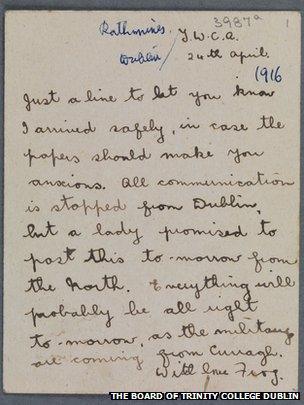 3987a 1
Rathmines Y.W.C.A.
Dublin 24th April.
1916
Just a line to let you know
I arrived safely, in case the
papers should make you
anxious. All communication
is stopped from Dublin,
but a lady promised to
post this to-morrow from
the North. Everything will
probably be all right
to-morrow, as the military
are coming from Curragh.
With love Frog.
THE BOARD OF TRINITY COLLEGE DUBLIN